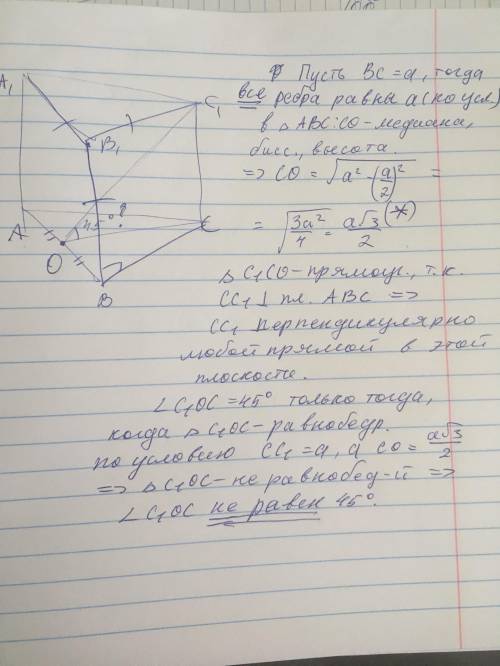 Пусть BC = a, тогда
все ребра равны a (по усл)
A₁
C₁
в △ABC: CO - медиана,
B₁
бисс., высота.
=> CO = √(a² - (a/2)²) =
= √(3a²/4) = a√3/2 (*)
45° ?
A
C
O
B
△C₁CO - прямоуг., т.к.
CC₁ ⊥ пл. ABC =>
CC₁ перпендикулярно
любой прямой в этой
плоскости.
∠C₁OC = 45° только тогда,
когда △C₁OC - равнобедр.
по условию CC₁ = a, а CO = a√3/2
=> △C₁OC - не равнобед-й =>
∠C₁OC не равен 45°.